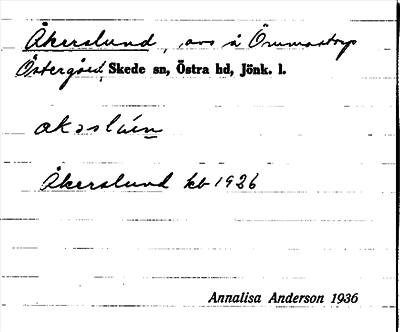 Åkerslund, avs å Örumastorp
Östergård, Skede sn, Östra hd, Jönk. l.
Åkerslund kb 1936
Annalisa Anderson 1936